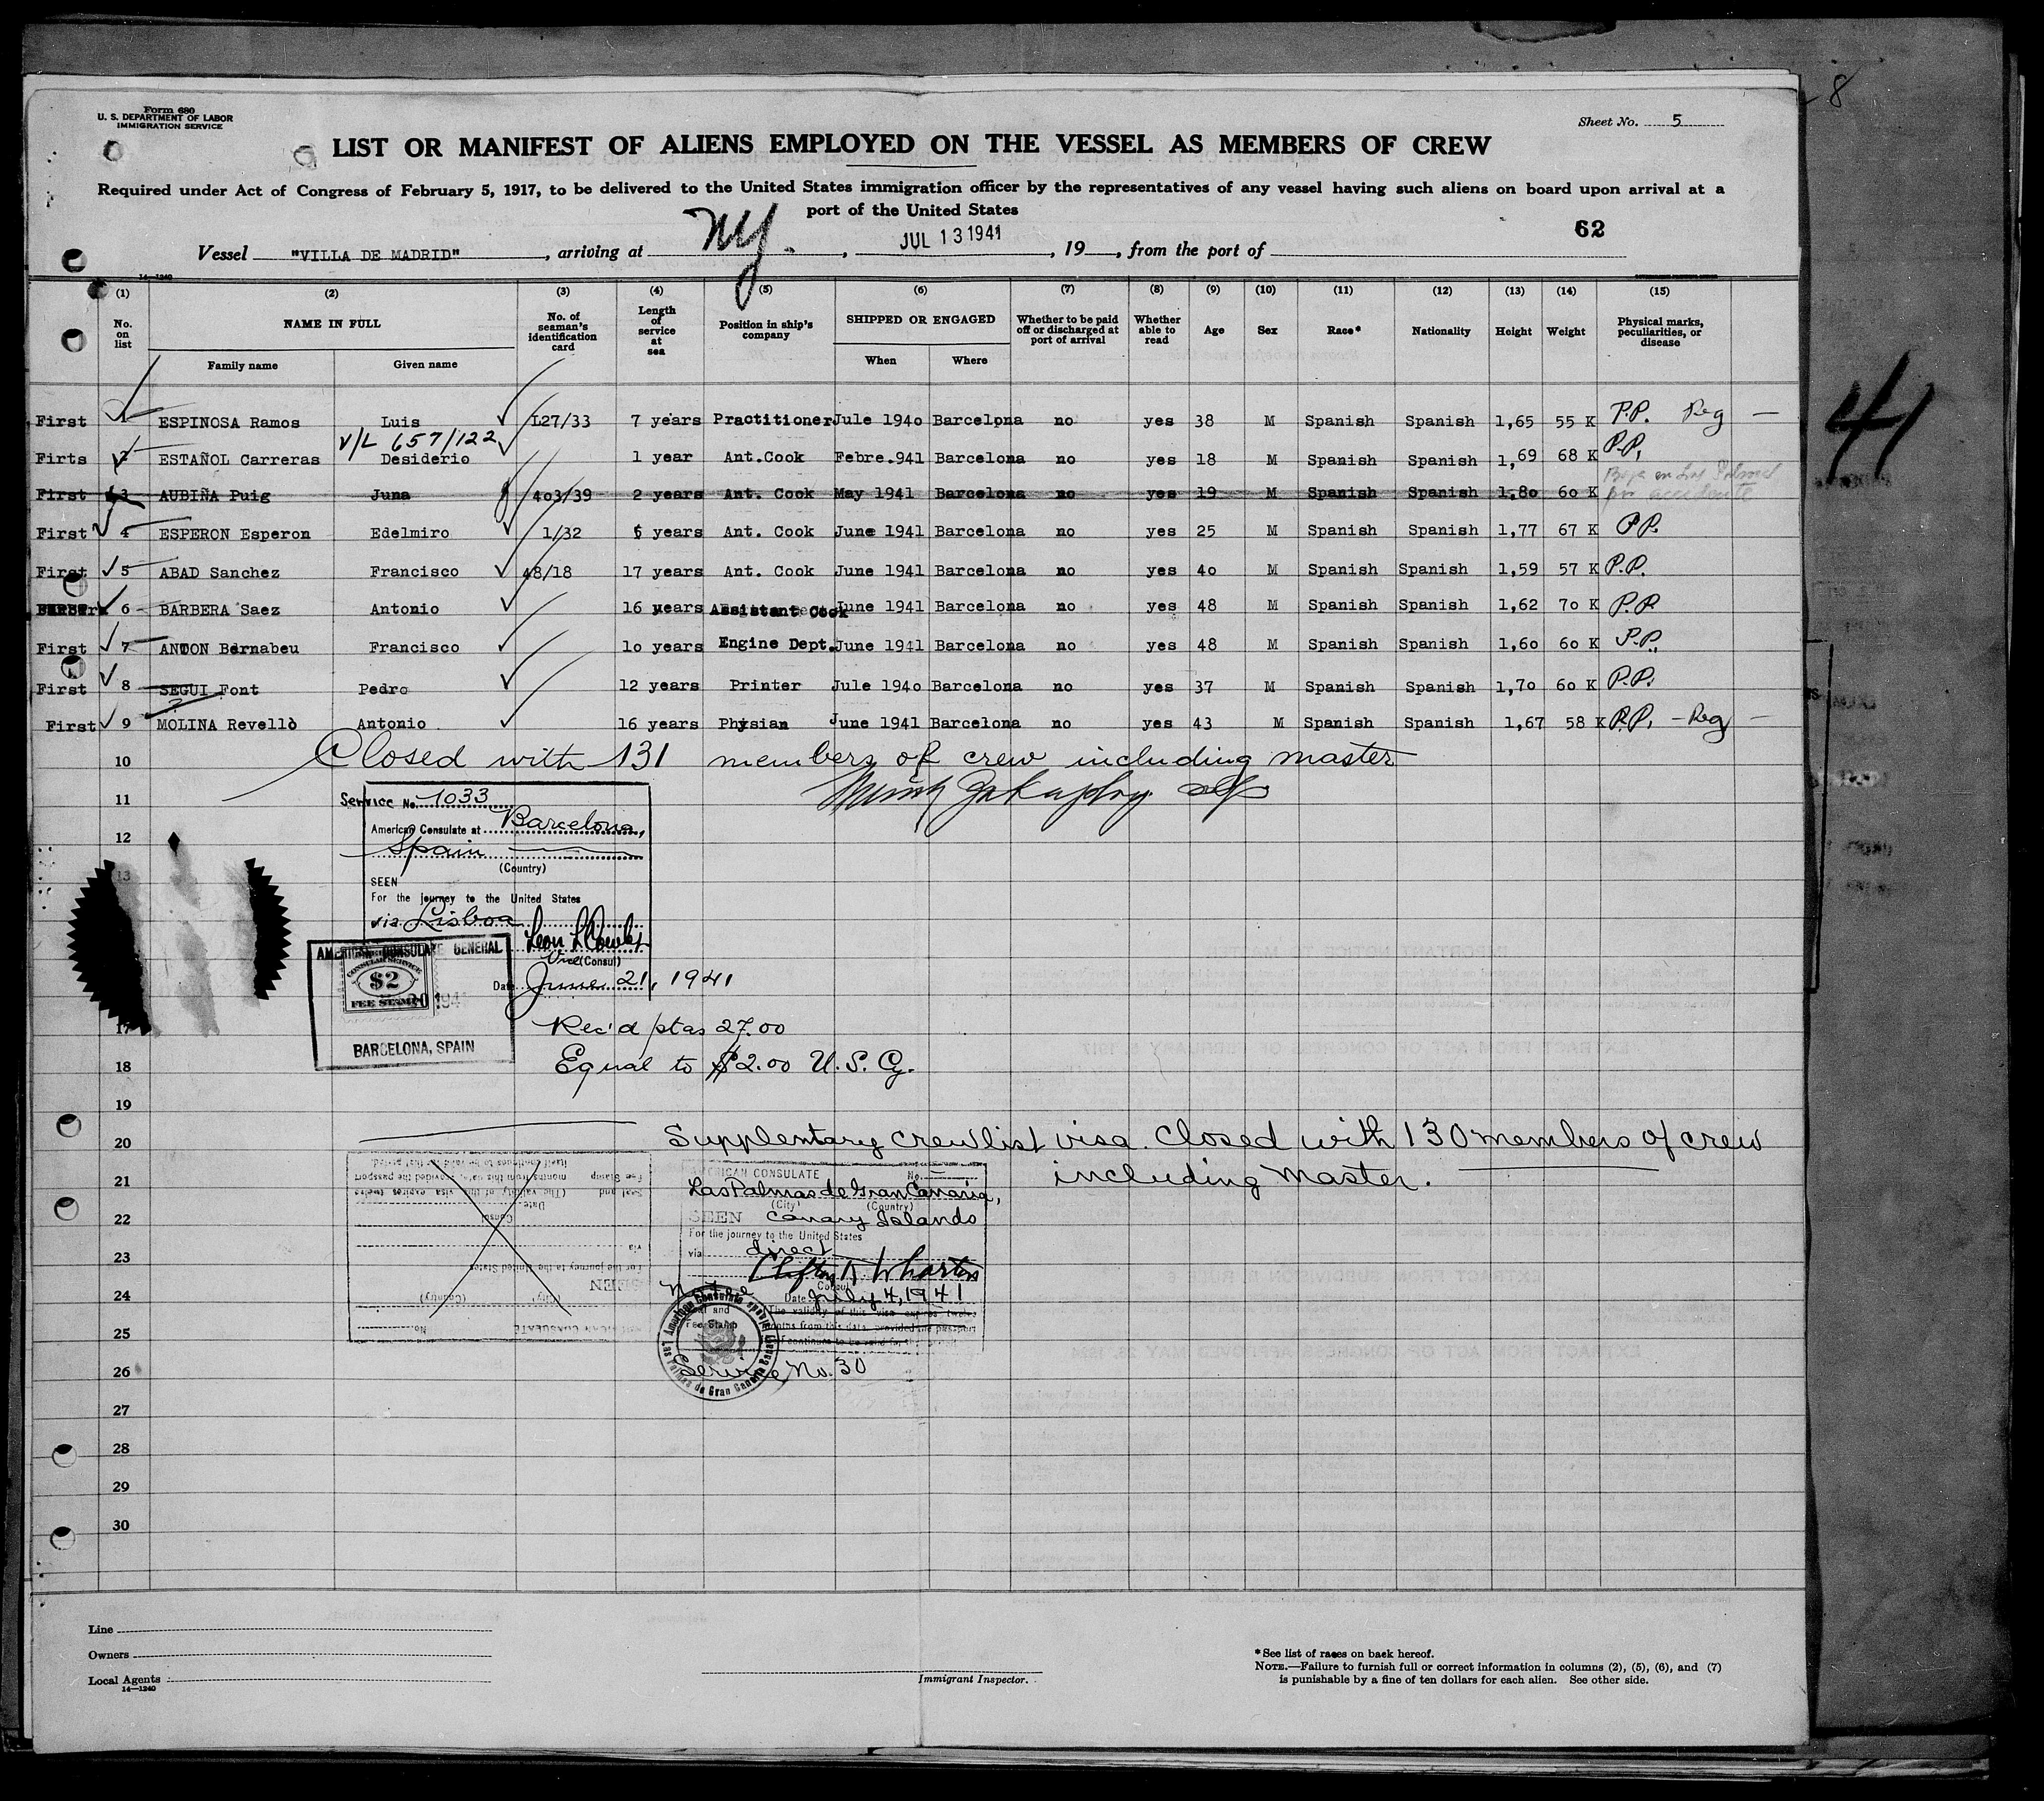 8
Form 680
U. S. DEPARTMENT OF LABOR
IMMIGRATION SERVICE
Sheet No. 5
LIST OR MANIFEST OF ALIENS EMPLOYED ON THE VESSEL AS MEMBERS OF CREW
Required under Act of Congress of February 5, 1917, to be delivered to the United States immigration officer by the representatives of any vessel having such aliens on board upon arrival at a
port of the United States
62
Vessel "VILLA DE MADRID", arriving at NY., JUL 13 1941, 19, from the port of
14—1240
(1) (2) (3) (4) (5) (6) (7) (8) (9) (10) (11) (12) (13) (14) (15)
No. on list NAME IN FULL No. of seaman's identification card Length of service at sea Position in ship's company SHIPPED OR ENGAGED Whether to be paid off or discharged at port of arrival Whether able to read Age Sex Race* Nationality Height Weight Physical marks, peculiarities, or disease
Family name Given name When Where
First 1 ESPINOSA Ramos Luis L27/33 7 years Practitioner Jule 1940 Barcelona no yes 38 M Spanish Spanish 1,65 55 K P.P. Reg —
V/L 657/122
Firts 2 ESTAÑOL Carreras Desiderio 1 year Ant.Cook Febre.941 Barcelona no yes 18 M Spanish Spanish 1,69 68 K P.P.
First 3 AUBIÑA Puig Juna 403/39 2 years Ant. Cook May 1941 Barcelona no yes 19 M Spanish Spanish 1,80 60 K Baja en Las Palmas
por accidente
First 4 ESPERON Esperon Edelmiro 1/32 6 years Ant. Cook June 1941 Barcelona no yes 25 M Spanish Spanish 1,77 67 K P.P.
First 5 ABAD Sanchez Francisco 48/18 17 years Ant. Cook June 1941 Barcelona no yes 40 M Spanish Spanish 1,59 57 K P.P.
6 BARBERA Saez Antonio 16 years Assistant Cook June 1941 Barcelona no yes 48 M Spanish Spanish 1,62 70 K P.P.
First 7 ANTON Bernabeu Francisco 10 years Engine Dept. June 1941 Barcelona no yes 48 M Spanish Spanish 1,60 60 K P.P.
First 8 SEGUI Font Pedro 12 years Printer Jule 1940 Barcelona no yes 37 M Spanish Spanish 1,70 60 K P.P.
First 9 MOLINA Revellò Antonio 16 years Physian June 1941 Barcelona no yes 43 M Spanish Spanish 1,67 58 K P.P. - Reg —
41
10 Closed with 131 members of crew including master
11
Service No. 1033
American Consulate at Barcelona,
12
Spain
(Country)
13
SEEN
For the journey to the United States
via Lisboa
AMERICAN CONSULATE GENERAL
Vice (Consul)
CONSULAR SERVICE
$2
FEE STAMP
Date June 21, 1941
17
Rec'd ptas 27.00
BARCELONA, SPAIN
18 Equal to $2.00 U.S. Cy.
19
20 Supplentary crewlist visa. Closed with 130 members of crew
including Master.
21
AMERICAN CONSULATE No.
Las Palmas de Gran Canaria,
(City) (Country)
22
SEEN Canary Islands
For the journey to the United States
23
via direct
Clifton R Wharton
Consul
24
Date July 4, 1941
The validity of this visa expires twelve
months from this date, provided the passport
continues to be valid for that period
Seal and
Fee Stamp
American Consulate
Las Palmas de Gran Canaria
25
26 Service No. 30
27
28
29
30
AMERICAN CONSULATE
No.
(City) (Country)
SEEN
For the journey to the United States
via
Consul
Date
Seal and
Fee Stamp
(The validity of this visa expires twelve
months from this date, provided the passport
itself continues to be valid for that period.
Line
Owners
Local Agents
14—1240
Immigrant Inspector.
*See list of races on back hereof.
NOTE.—Failure to furnish full or correct information in columns (2), (5), (6), and (7)
is punishable by a fine of ten dollars for each alien. See other side.